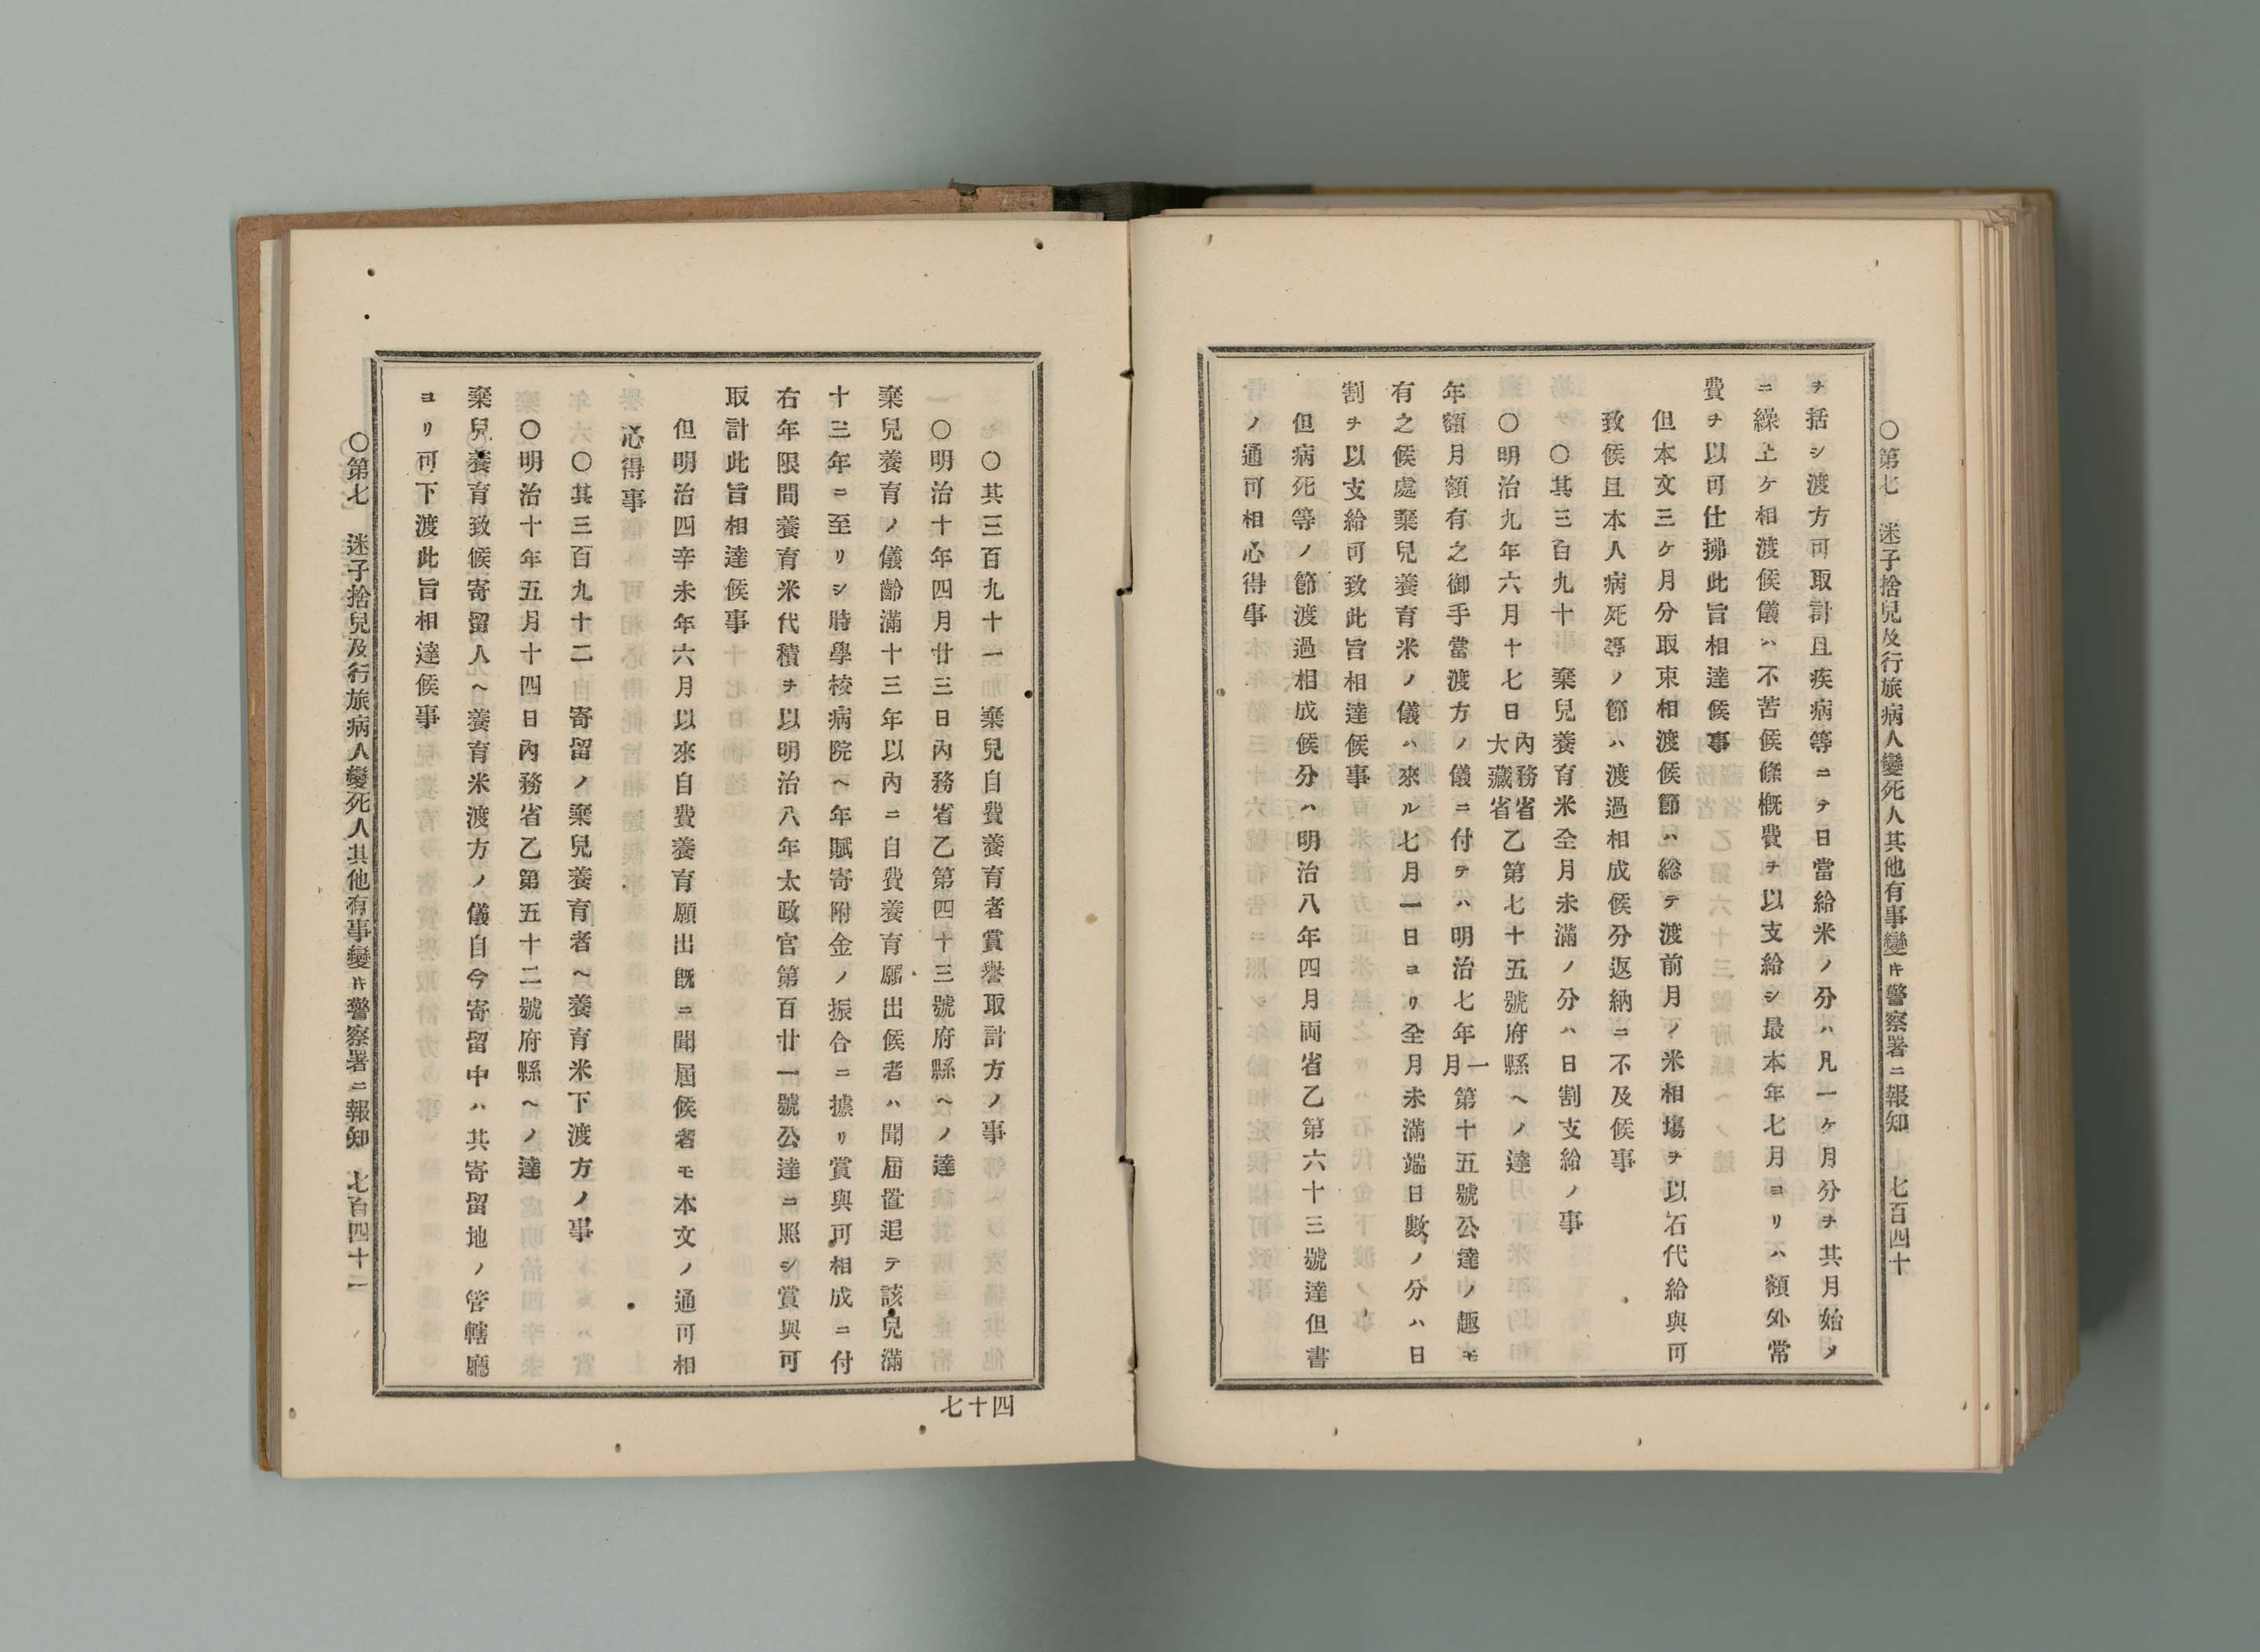 〇第七　迷子捨兒及行旅病人變死人其他有事變ㇵ警察署ニ報知　七百四十
ヲ括シ渡方可取計且疾病等ニテ日當給米ノ分ハ凡一ケ月分ヲ其月始メ
ニ繰上ケ相渡候儀ハ不苦候條概費ヲ以支給シ最本年七月ヨリハ額外常
費ヲ以可仕拂此旨相達候事
但本文三ケ月分取束相渡候節ハ総テ渡前月ノ米相塲ヲ以石代給與可
致候且本人病死等ノ節ハ渡過相成候分返納ニ不及候事
〇其三百九十　棄兒養育米全月未滿ノ分ハ日割支給ノ事
〇明治九年六月十七日內務省大藏省乙第七十五號府縣ヘノ達
年額月額有之御手當渡方ノ儀ニ付テハ明治七年一月第十五號公達ノ趣モ
有之候處棄兒養育米ノ儀ハ來ル七月一日ヨリ全月未滿端日數ノ分ハ日
割ヲ以支給可致此旨相達候事
但病死等ノ節渡過相成候分ハ明治八年四月両省乙第六十三號達但書
ノ通可相心得事
〇其三百九十一　棄兒自費養育者賞譽取計方ノ事
〇明治十年四月廿三日內務省乙第四十三號府縣ヘノ達
棄兒養育ノ儀齡滿十三年以內ニ自費養育願出候者ハ聞届置追テ該兒滿
十三年ニ至リシ時學校病院ヘ年賦寄附金ノ振合ニ據リ賞與可相成ニ付
右年限間養育米代積ヲ以明治八年太政官第百廿一號公達ニ照シ賞與可
取計此旨相達候事
但明治四辛未年六月以來自費養育願出既ニ聞届候者モ本文ノ通可相
心得事
〇其三百九十二　寄留ノ棄兒養育者ヘ養育米下渡方ノ事
〇明治十年五月十四日內務省乙第五十二號府縣ヘノ達
棄兒養育致候寄留人ヘ養育米渡方ノ儀自今寄留中ハ其寄留地ノ管轄廳
ヨリ可下渡此旨相達候事
〇第七　迷子捨兒及行旅病人變死人其他有事變ㇵ警察署ニ報知　七百四十一
四十七